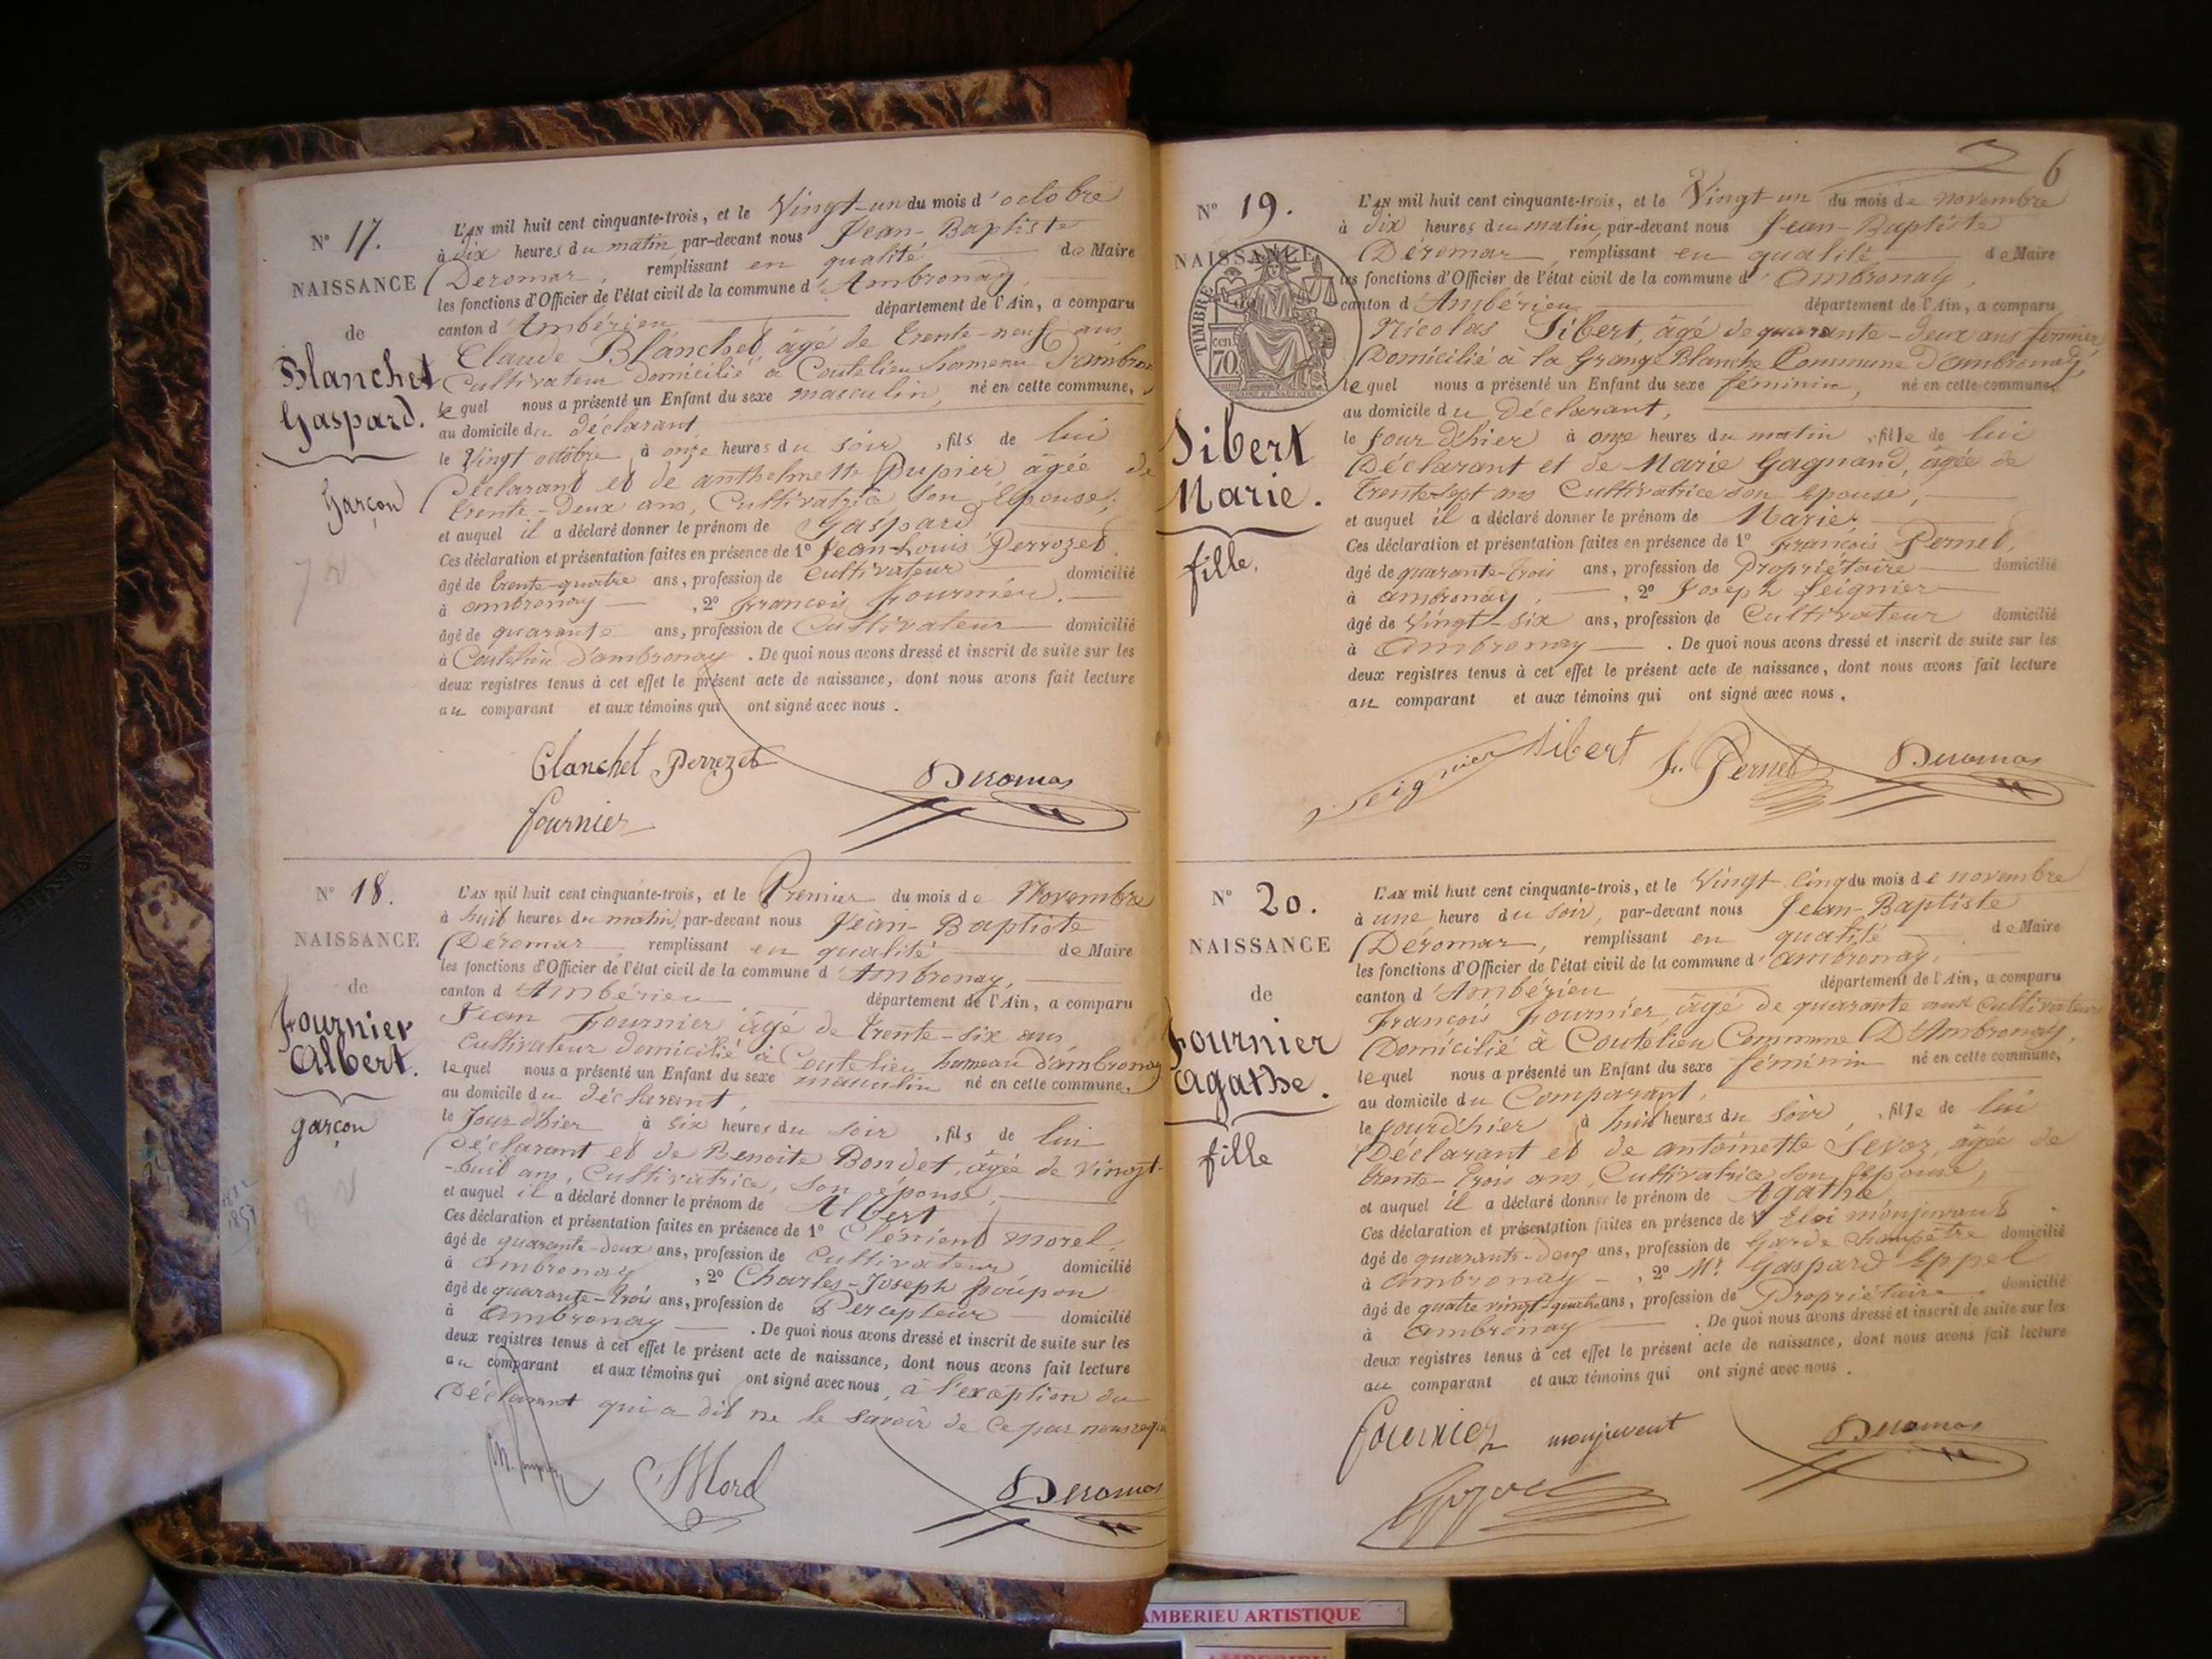 N° 17.
NAISSANCE
de
Blanchet
Gaspard.
Garçon
L'AN mil huit cent cinquante-trois, et le Vingt-un du mois d'octobre
à dix heures du matin, par-devant nous Jean-Baptiste
Deromas, remplissant en qualité de Maire
les fonctions d'Officier de l'état civil de la commune d'Ambronay,
canton d'Ambérieu département de l'Ain, a comparu
Claude Blanchet âgé de trente-neuf ans
Cultivateur domicilié à Coutelieu hameau d'ambronay
lequel nous a présenté un Enfant du sexe masculin, né en cette commune,
au domicile du déclarant
le Vingt octobre à onze heures du soir, fils de lui
Déclarant et de anthelmette Dupier, âgée de
trente-deux ans, Cultivatrice son Epouse,
et auquel il a déclaré donner le prénom de Gaspard
Ces déclaration et présentation faites en présence de 1° Jean-Louis Perrozet,
âgé de trente-quatre ans, profession de Cultivateur domicilié
à ambronay, 2° François fournier.
âgé de quarante ans, profession de Cultivateur domicilié
à Coutelieu d'ambronay. De quoi nous avons dressé et inscrit de suite sur les
deux registres tenus à cet effet le présent acte de naissance, dont nous avons fait lecture
au comparant et aux témoins qui ont signé avec nous.
Blanchet Perrozet
Deromas
fournier
N° 18.
NAISSANCE
de
Fournier
Albert.
garçon
L'AN mil huit cent cinquante-trois, et le Premier du mois de Novembre
à huit heures du matin, par-devant nous Jean-Baptiste
Deromas, remplissant en qualité de Maire
les fonctions d'Officier de l'état civil de la commune d'Ambronay,
canton d'Ambérieu département de l'Ain, a comparu
Jean Fournier âgé de trente-six ans
Cultivateur domicilié à Coutelieu hameau d'ambronay
lequel nous a présenté un Enfant du sexe masculin né en cette commune,
au domicile du déclarant,
le Jour d'hier à six heures du soir, fils de lui
Déclarant et de Benoite Bondet, âgée de vingt-
-huit ans, Cultivatrice, son épouse,
et auquel il a déclaré donner le prénom de Albert
Ces déclaration et présentation faites en présence de 1° Clément morel,
âgé de quarante-deux ans, profession de Cultivateur domicilié
à ambronay, 2° Charles-Joseph poupon
âgé de quarante-trois ans, profession de Percepteur domicilié
à Ambronay. De quoi nous avons dressé et inscrit de suite sur les
deux registres tenus à cet effet le présent acte de naissance, dont nous avons fait lecture
au comparant et aux témoins qui ont signé avec nous, à l'exeption du
Déclarant qui a dit ne le savoir de ce par nous
C Morel
Deromas
6
N° 19.
NAISSANCE
TIMBRE
cen
70.
Sibert
Marie.
fille.
L'AN mil huit cent cinquante-trois, et le Vingt-un du mois de novembre
à dix heures du matin, par-devant nous Jean-Baptiste
Déromas, remplissant en qualité de Maire
les fonctions d'Officier de l'état civil de la commune d'Ambronay,
canton d'Ambérieu département de l'Ain, a comparu
Nicolas Sibert, âgé de quarante-deux ans fermier
Domicilié à la Grange Blanche Commune d'ambronay,
lequel nous a présenté un Enfant du sexe féminin, né en cette commune,
au domicile du Déclarant,
le Jour d'hier à onze heures du matin, fille de lui
Déclarant et de Marie Gagnand, âgée de
trente-sept ans Cultivatrice son épouse,
et auquel il a déclaré donner le prénom de Marie.
Ces déclaration et présentation faites en présence de 1° François Pernet,
âgé de quarante-trois ans, profession de Propriétaire domicilié
à ambronay, 2° Joseph Seignier
âgé de Vingt-six ans, profession de Cultivateur domicilié
à Ambronay. De quoi nous avons dressé et inscrit de suite sur les
deux registres tenus à cet effet le présent acte de naissance, dont nous avons fait lecture
au comparant et aux témoins qui ont signé avec nous.
Seignier Sibert f. Pernet Deromas
N° 20.
NAISSANCE
de
Fournier
Agathe.
fille
L'AN mil huit cent cinquante-trois, et le Vingt-Cinq du mois de novembre
à une heure du soir, par-devant nous Jean-Baptiste
Déromas, remplissant en qualité de Maire
les fonctions d'Officier de l'état civil de la commune d'ambronay,
canton d'Ambérieu département de l'Ain, a comparu
François Fournier, âgé de quarante ans cultivateur
Domicilié à Coutelieu Commune D'Ambronay,
lequel nous a présenté un Enfant du sexe féminin né en cette commune,
au domicile du Comparant,
le jour d'hier à huit heures du soir, fille de lui
Déclarant et de antoinette Sevoz, âgée de
trente-trois ans, Cultivatrice son Epouse,
et auquel il a déclaré donner le prénom de Agathe
Ces déclaration et présentation faites en présence de 1° Eloi monjuvent
âgé de quarante-deux ans, profession de Garde Champêtre domicilié
à ambronay, 2° Mr Gaspard Eppel
âgé de quatre vingt-quatre ans, profession de Propriétaire domicilié
à ambronay. De quoi nous avons dressé et inscrit de suite sur les
deux registres tenus à cet effet le présent acte de naissance, dont nous avons fait lecture
au comparant et aux témoins qui ont signé avec nous.
fournier monjuvent Deromas
AMBERIEU ARTISTIQUE